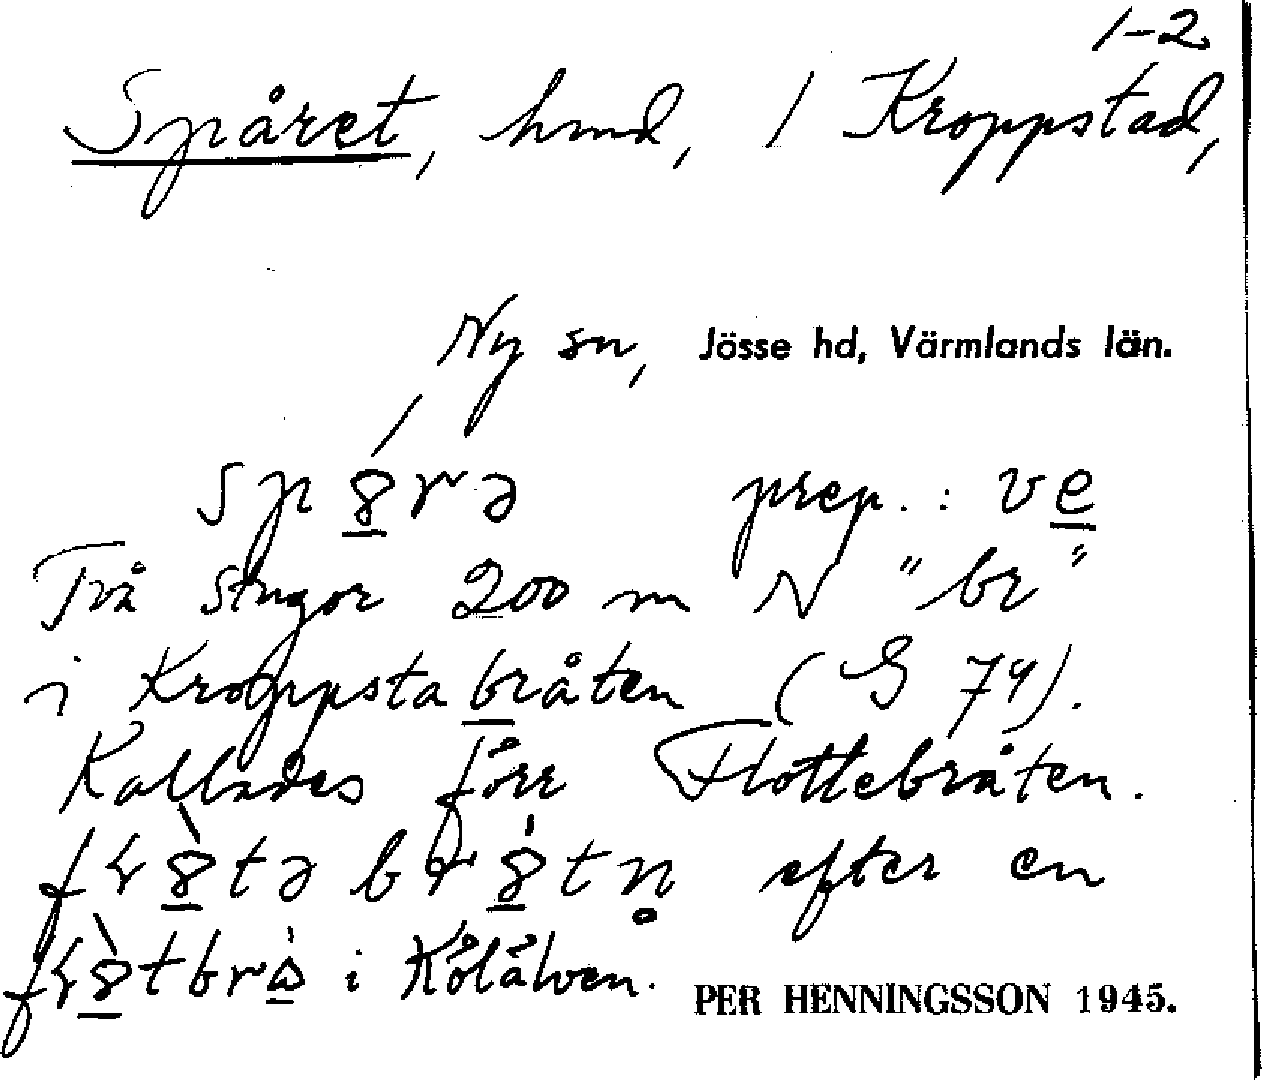 1-2
Spåret, hmd, / Kroppstad,
Ny sn, Jösse hd, Värmlands län.
prep. : ve
Två stugor 200 m N "br"
i Kroppstabråten (G 74).
Kallades förr Flottebråten.
efter en
i Kölälven.
PER HENNINGSSON 1945.